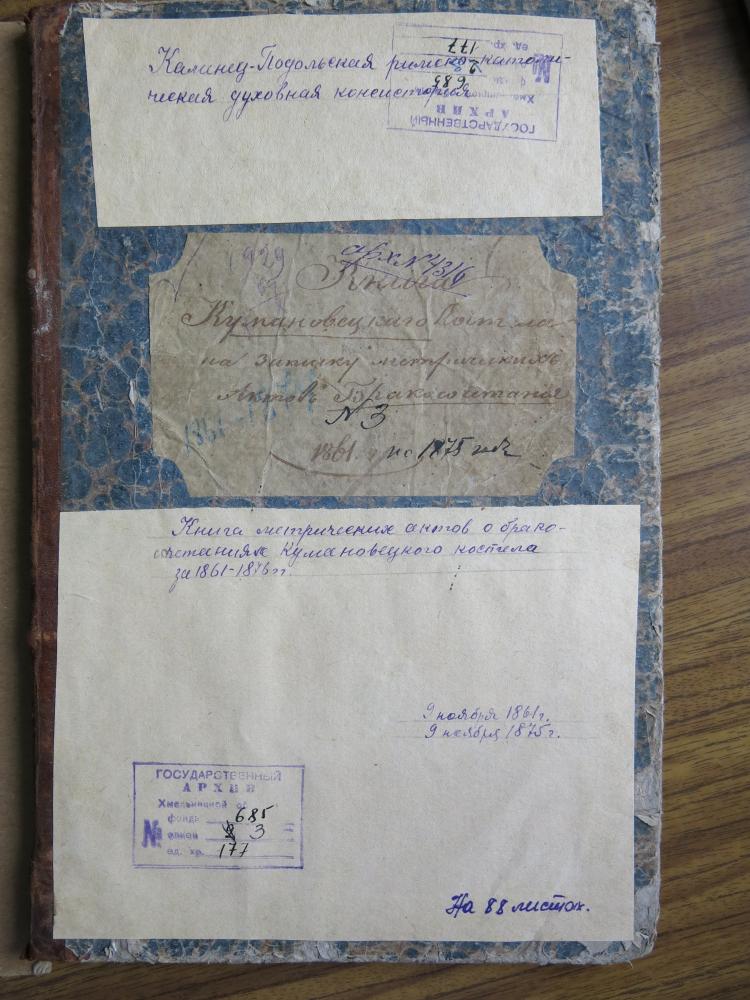 Каминец-Подольская римско-католи-
ческая духовная консистория
ГОСУДАРСТВЕННЫЙ
АРХИВ
685
ед. хр. 177
№
1929
арх. N 4316
Книга
Кумановецкаго Костела
на записку метрическихъ
Актовъ Бракосочетанія
N 3
1861 по 1875 годъ
Книга метрических актов о брако-
сочетаниях Кумановецкого костела
за 1861-1876 гг.
9 ноября 1861 г.
9 ноября 1875 г.
ГОСУДАРСТВЕННЫЙ
АРХИВ
Хмельницкой об
фонд 685
№ описи 3
ед. хр. 177
На 88 листах.